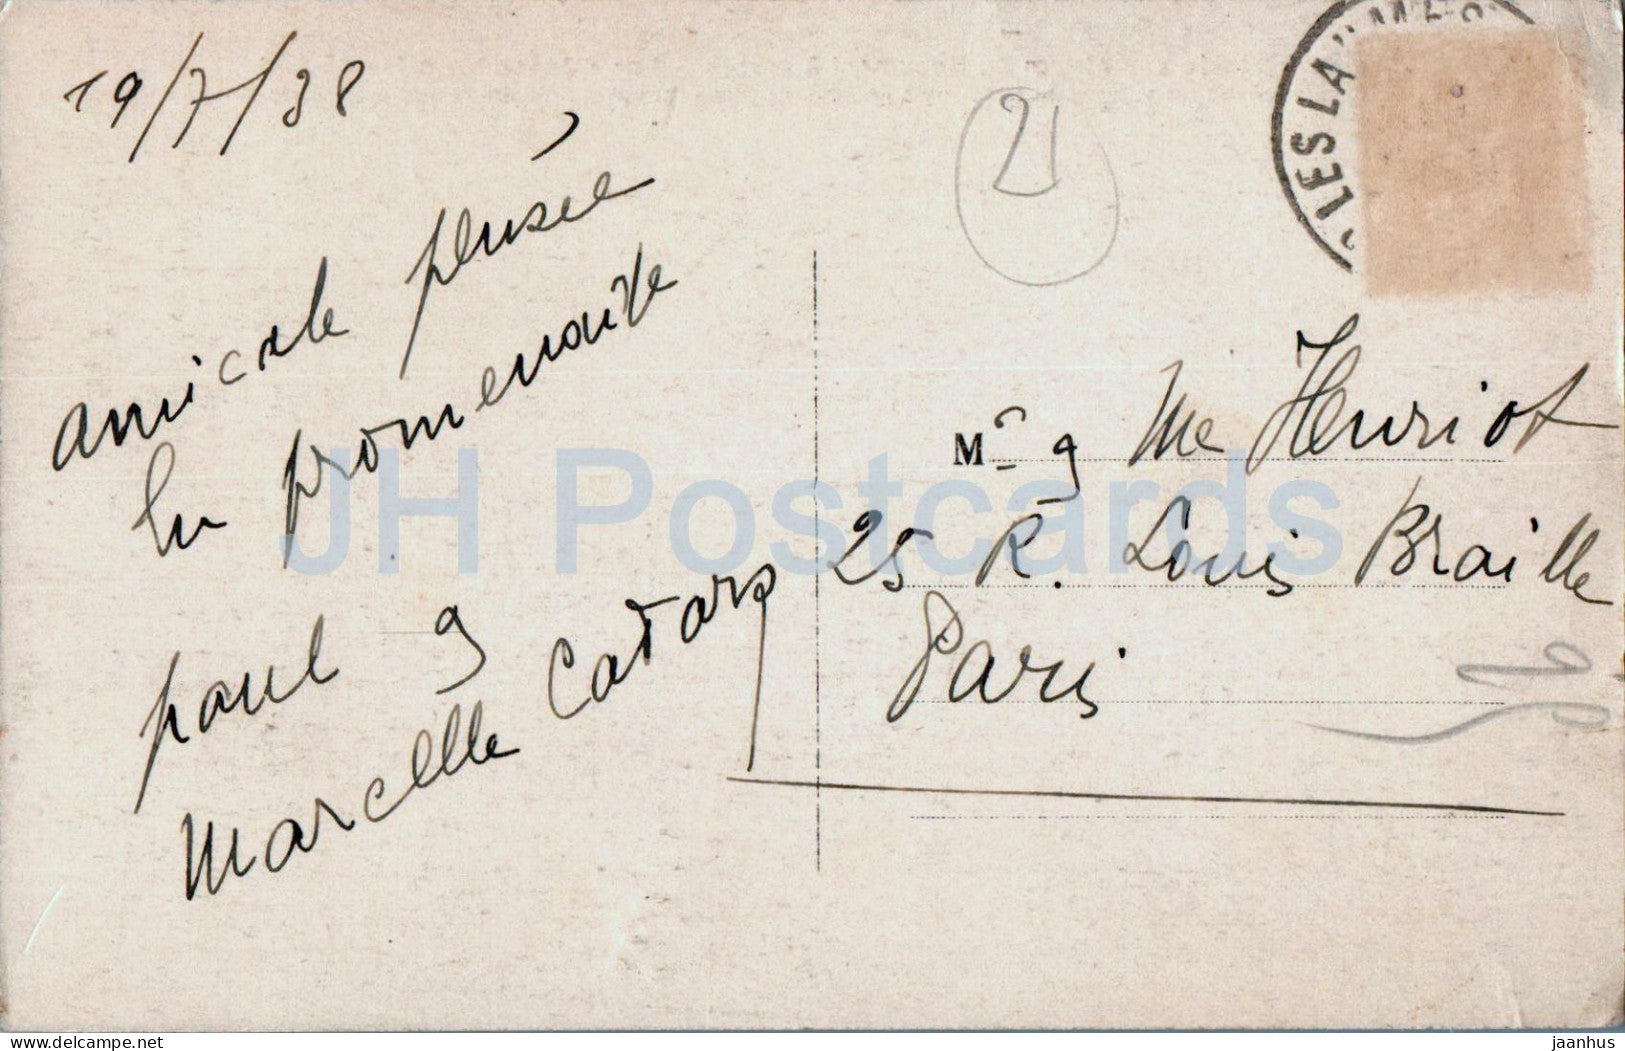 19/7/38
amicale pensée
en promenade
paul &
Marcelle
21
LES LA
Mr & Me Henriot
25 R. Louis Braille
Paris
JH Postcards
delcampe.net
jaanhus